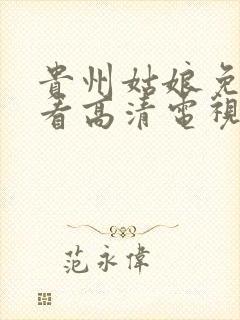 貴州姑娘免
看高清電視
范永偉